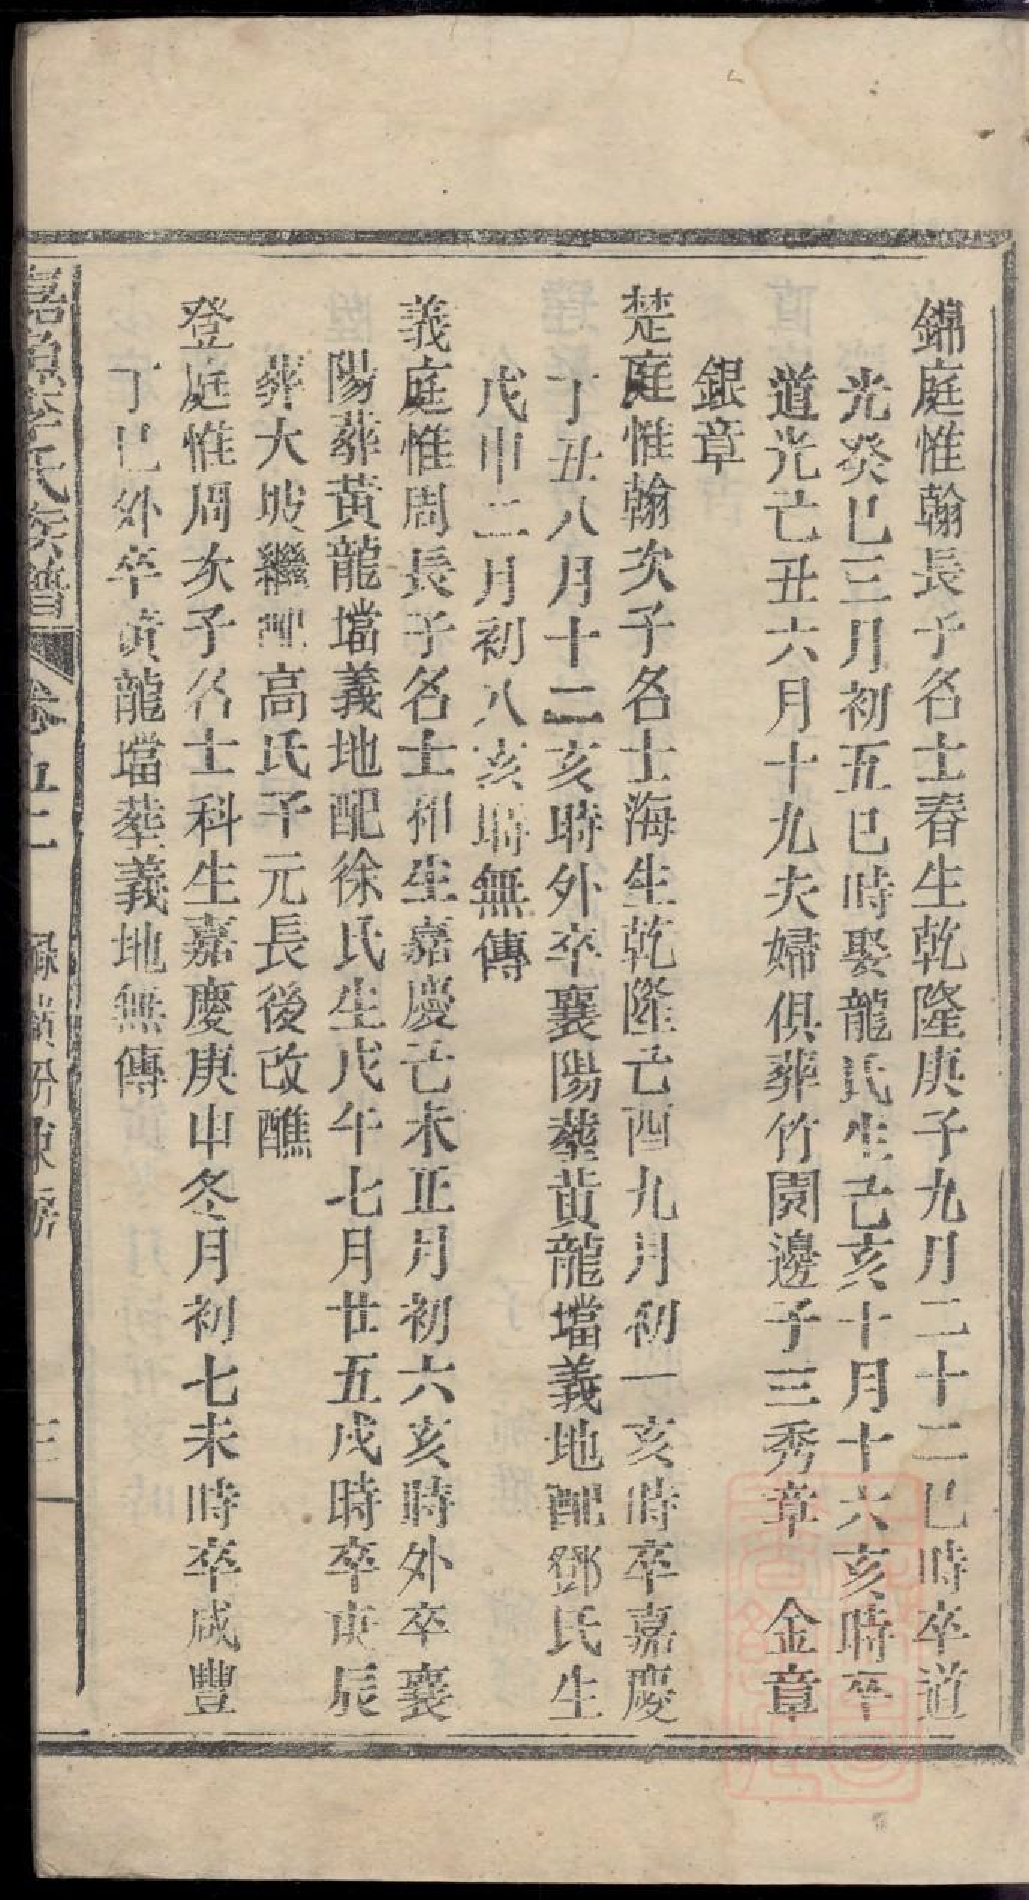 錦庭惟翰長子名士春生乾隆庚子九月二十二巳時卒道
光癸巳三月初五巳時娶龍氏生己亥十月十六亥時卒
道光亡丑六月十九夫婦俱葬竹園邊子三秀章　金章
銀章
楚庭惟翰次子名士海生乾隆己酉九月初一亥時卒嘉慶
丁丑八月十二亥時外卒襄陽塟黄龍壋義地配鄧氏生
戊申二月初八亥時無傳
義庭惟周長子名士和生嘉慶己未正月初六亥時外卒襄
陽葬黄龍壋義地配徐氏生戊午七月廿五戌時卒庚辰
葬大坡繼配高氏子元長後改醮
登庭惟周次子名士科生嘉慶庚申冬月初七未時卒咸豐
丁巳外卒黄龍壋塟義地無傳
嘉魚李氏族譜　卷五　房　三